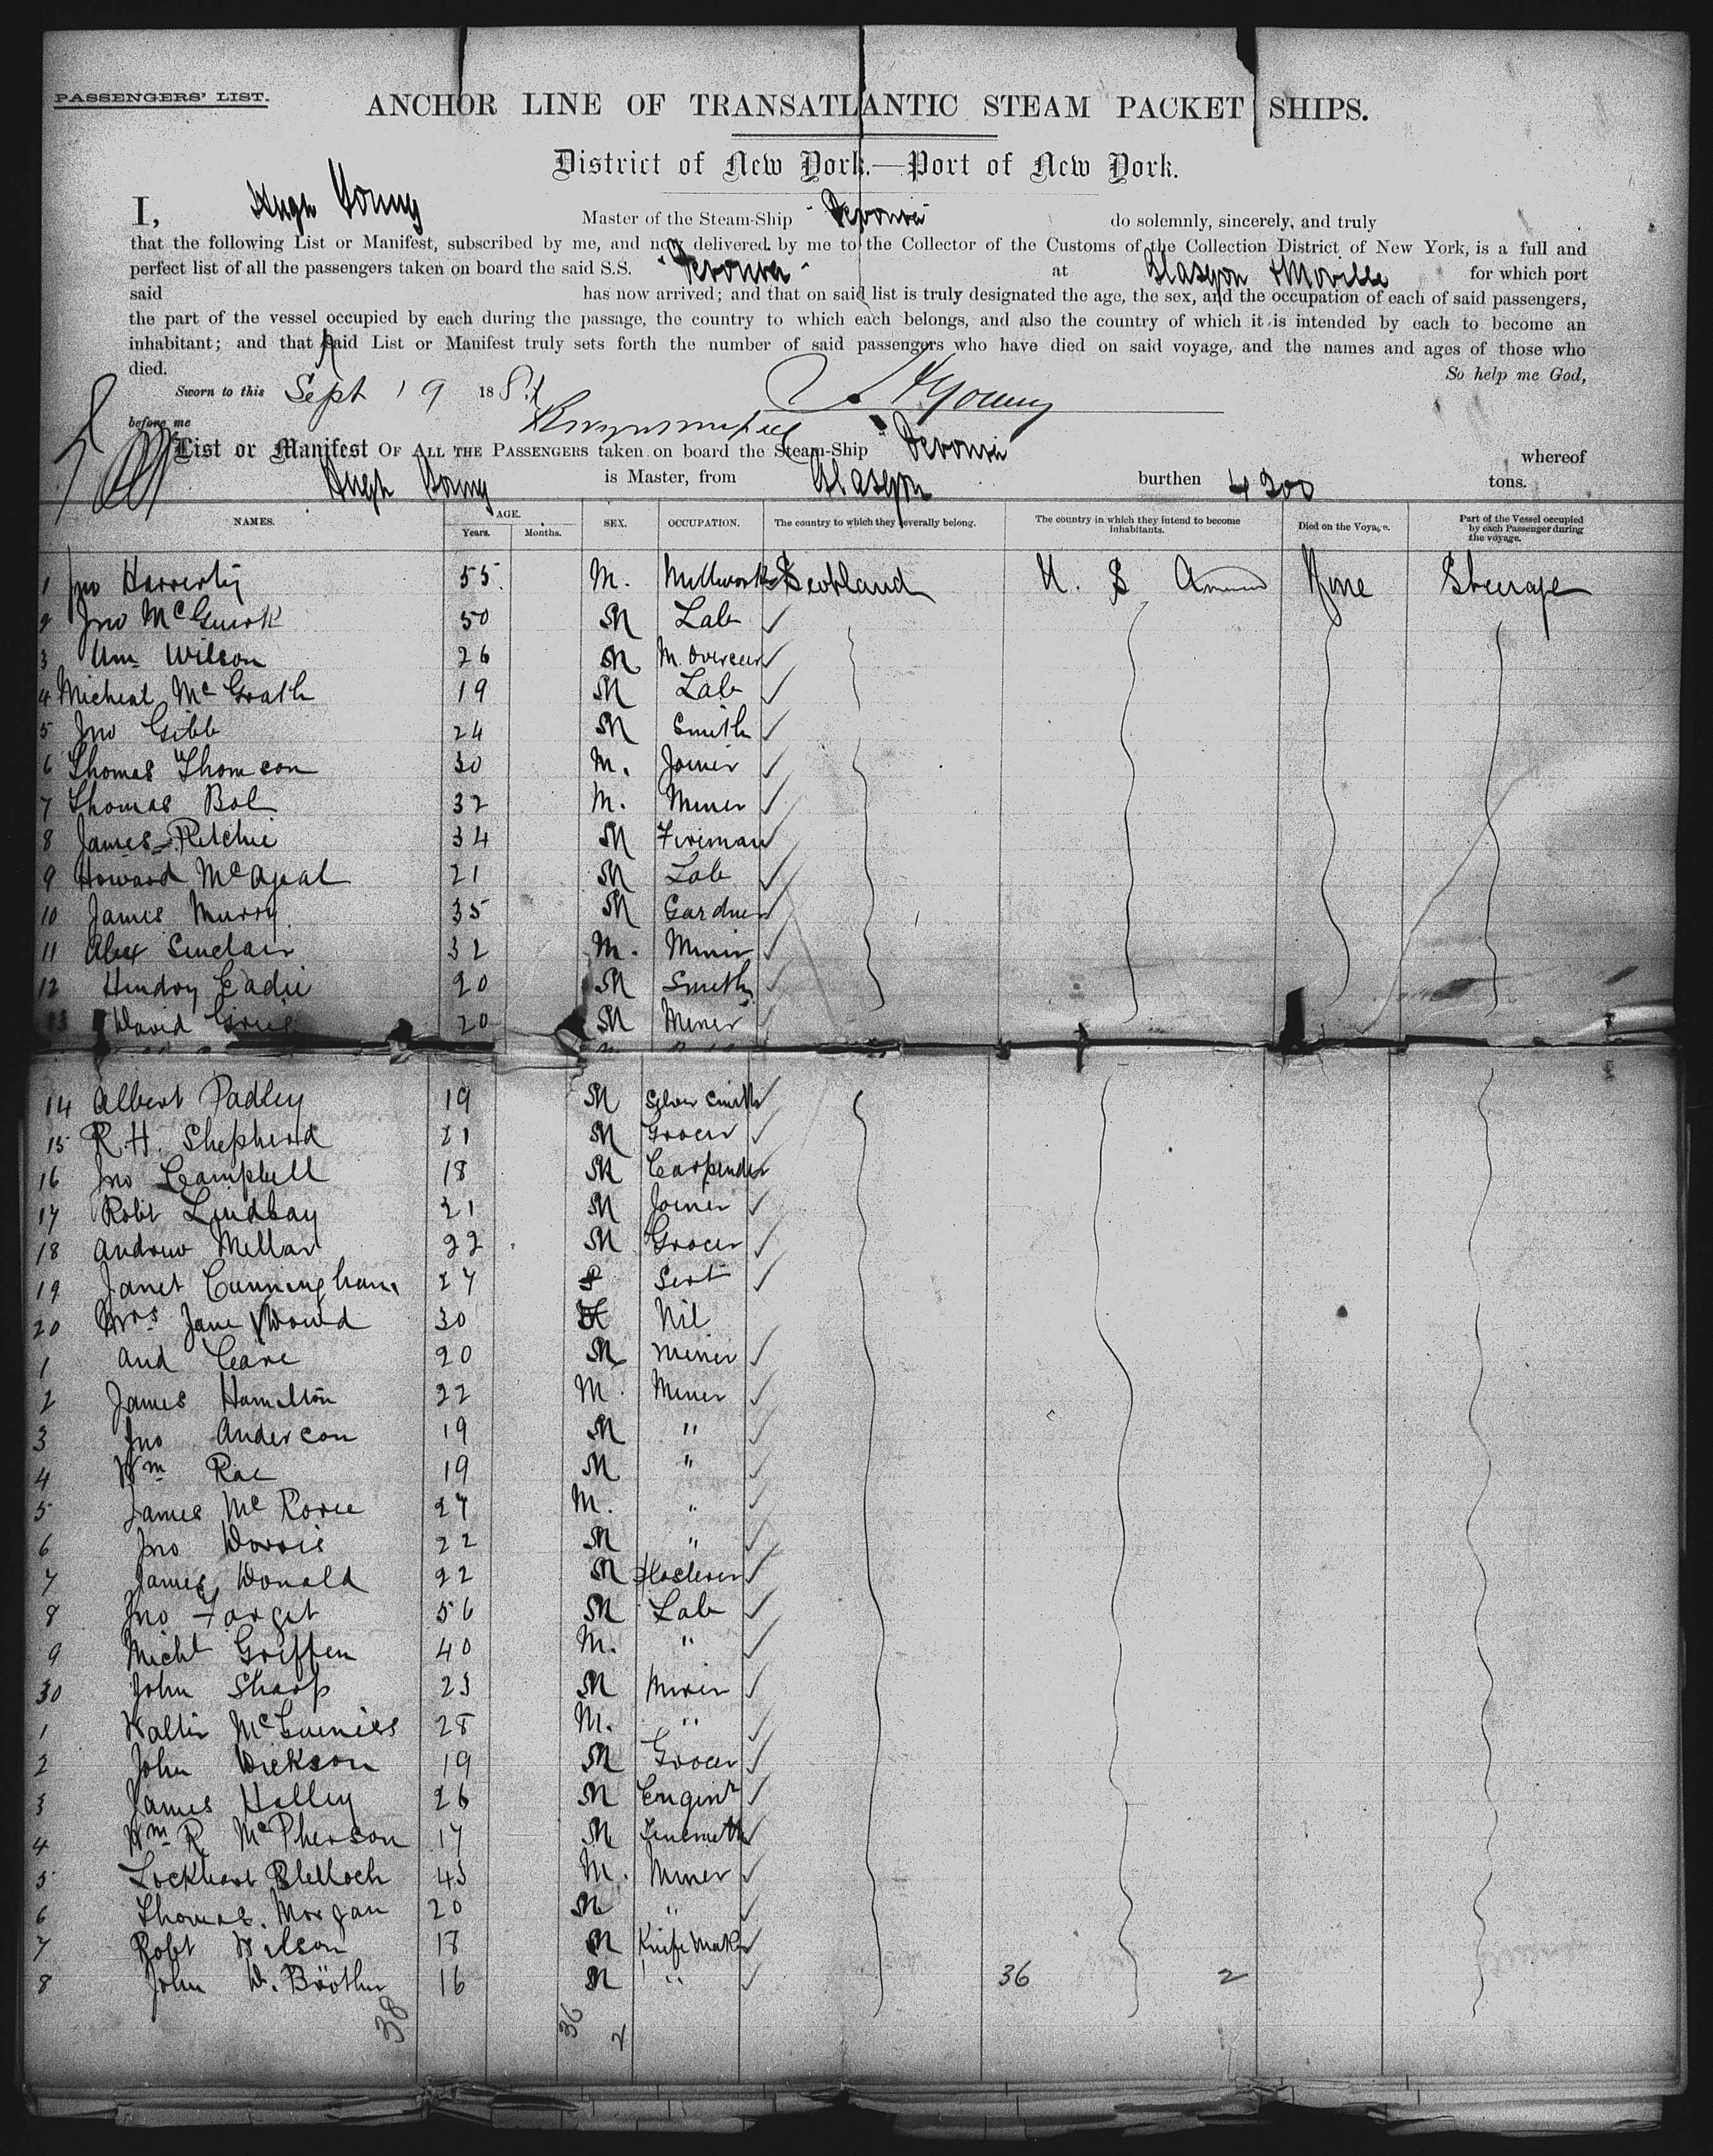 PASSENGERS' LIST.
ANCHOR LINE OF TRANSATLANTIC STEAM PACKET SHIPS.
District of New York.—Port of New York.
I, Hugh Young Master of the Steam-Ship "Devonia" do solemnly, sincerely, and truly
that the following List or Manifest, subscribed by me, and now delivered by me to the Collector of the Customs of the Collection District of New York, is a full and
perfect list of all the passengers taken on board the said S.S. "Devonia" at Glasgow & Moville for which port
said has now arrived; and that on said list is truly designated the age, the sex, and the occupation of each of said passengers,
the part of the vessel occupied by each during the passage, the country to which each belongs, and also the country of which it is intended by each to become an
inhabitant; and that said List or Manifest truly sets forth the number of said passengers who have died on said voyage, and the names and ages of those who
died. So help me God,
Sworn to this Sept 19 188 H Young
before me
List or Manifest OF ALL THE PASSENGERS taken on board the Steam-Ship "Devonia whereof
Hugh Young is Master, from Glasgow burthen 4200 tons.
NAMES. AGE. SEX. OCCUPATION. The country to which they severally belong. The country in which they intend to become inhabitants. Died on the Voyage. Part of the Vessel occupied by each Passenger during the voyage.
Years. Months.
1 Jno Haverty 55 M. Millworker Scotland U. S America None Steerage
2 Jno McGuirk 50 M Lab
3 Wm Wilson 26 M M. Overseer
4 Micheal McGrath 19 M Lab
5 Jno Gibb 24 M Smith
6 Thomas Thomson 30 M. Joiner
7 Thomas Bol 32 M. Miner
8 James Ritchie 34 M Fireman
9 Howard 21 M Lab
10 James Murry 35 M Gardner
11 Alex Sinclair 32 M. Miner
12 Hendry Eadie 20 M Smith
13 David 20 M Miner
14 Albert Padley 19 M Silver Smith
15 R.H. Shepherd 21 M Grocer
16 Jno Campbell 18 M Carpender
17 Robt Lindsay 21 M Joiner
18 Andrew Millar 22 M Grocer
19 Janet Cunningham 27 F Servt
20 Mrs Jane 30 F Nil
1 And 20 M Miner
2 James Hamilton 22 M. Miner
3 Jno Anderson 19 M "
4 Wm Rae 19 M "
5 James McRorie 27 M. "
6 Jno 22 M "
7 James Donald 22 M Plasterer
8 Jno Target 56 M Lab
9 Michl Griffen 40 M. "
30 John Sharp 23 M Miner
1 Walter McGuiness 28 M. "
2 John Dickson 19 M Grocer
3 James Halley 26 M Enginr
4 Wm R McPherson 17 M Tinsmith
5 Lockhart Blelloch 43 M. Miner
6 Thomas Morgan 20 M "
7 Robt Wilson 18 M Knife Makr
8 John W. 16 M " 36 2
38 36 2